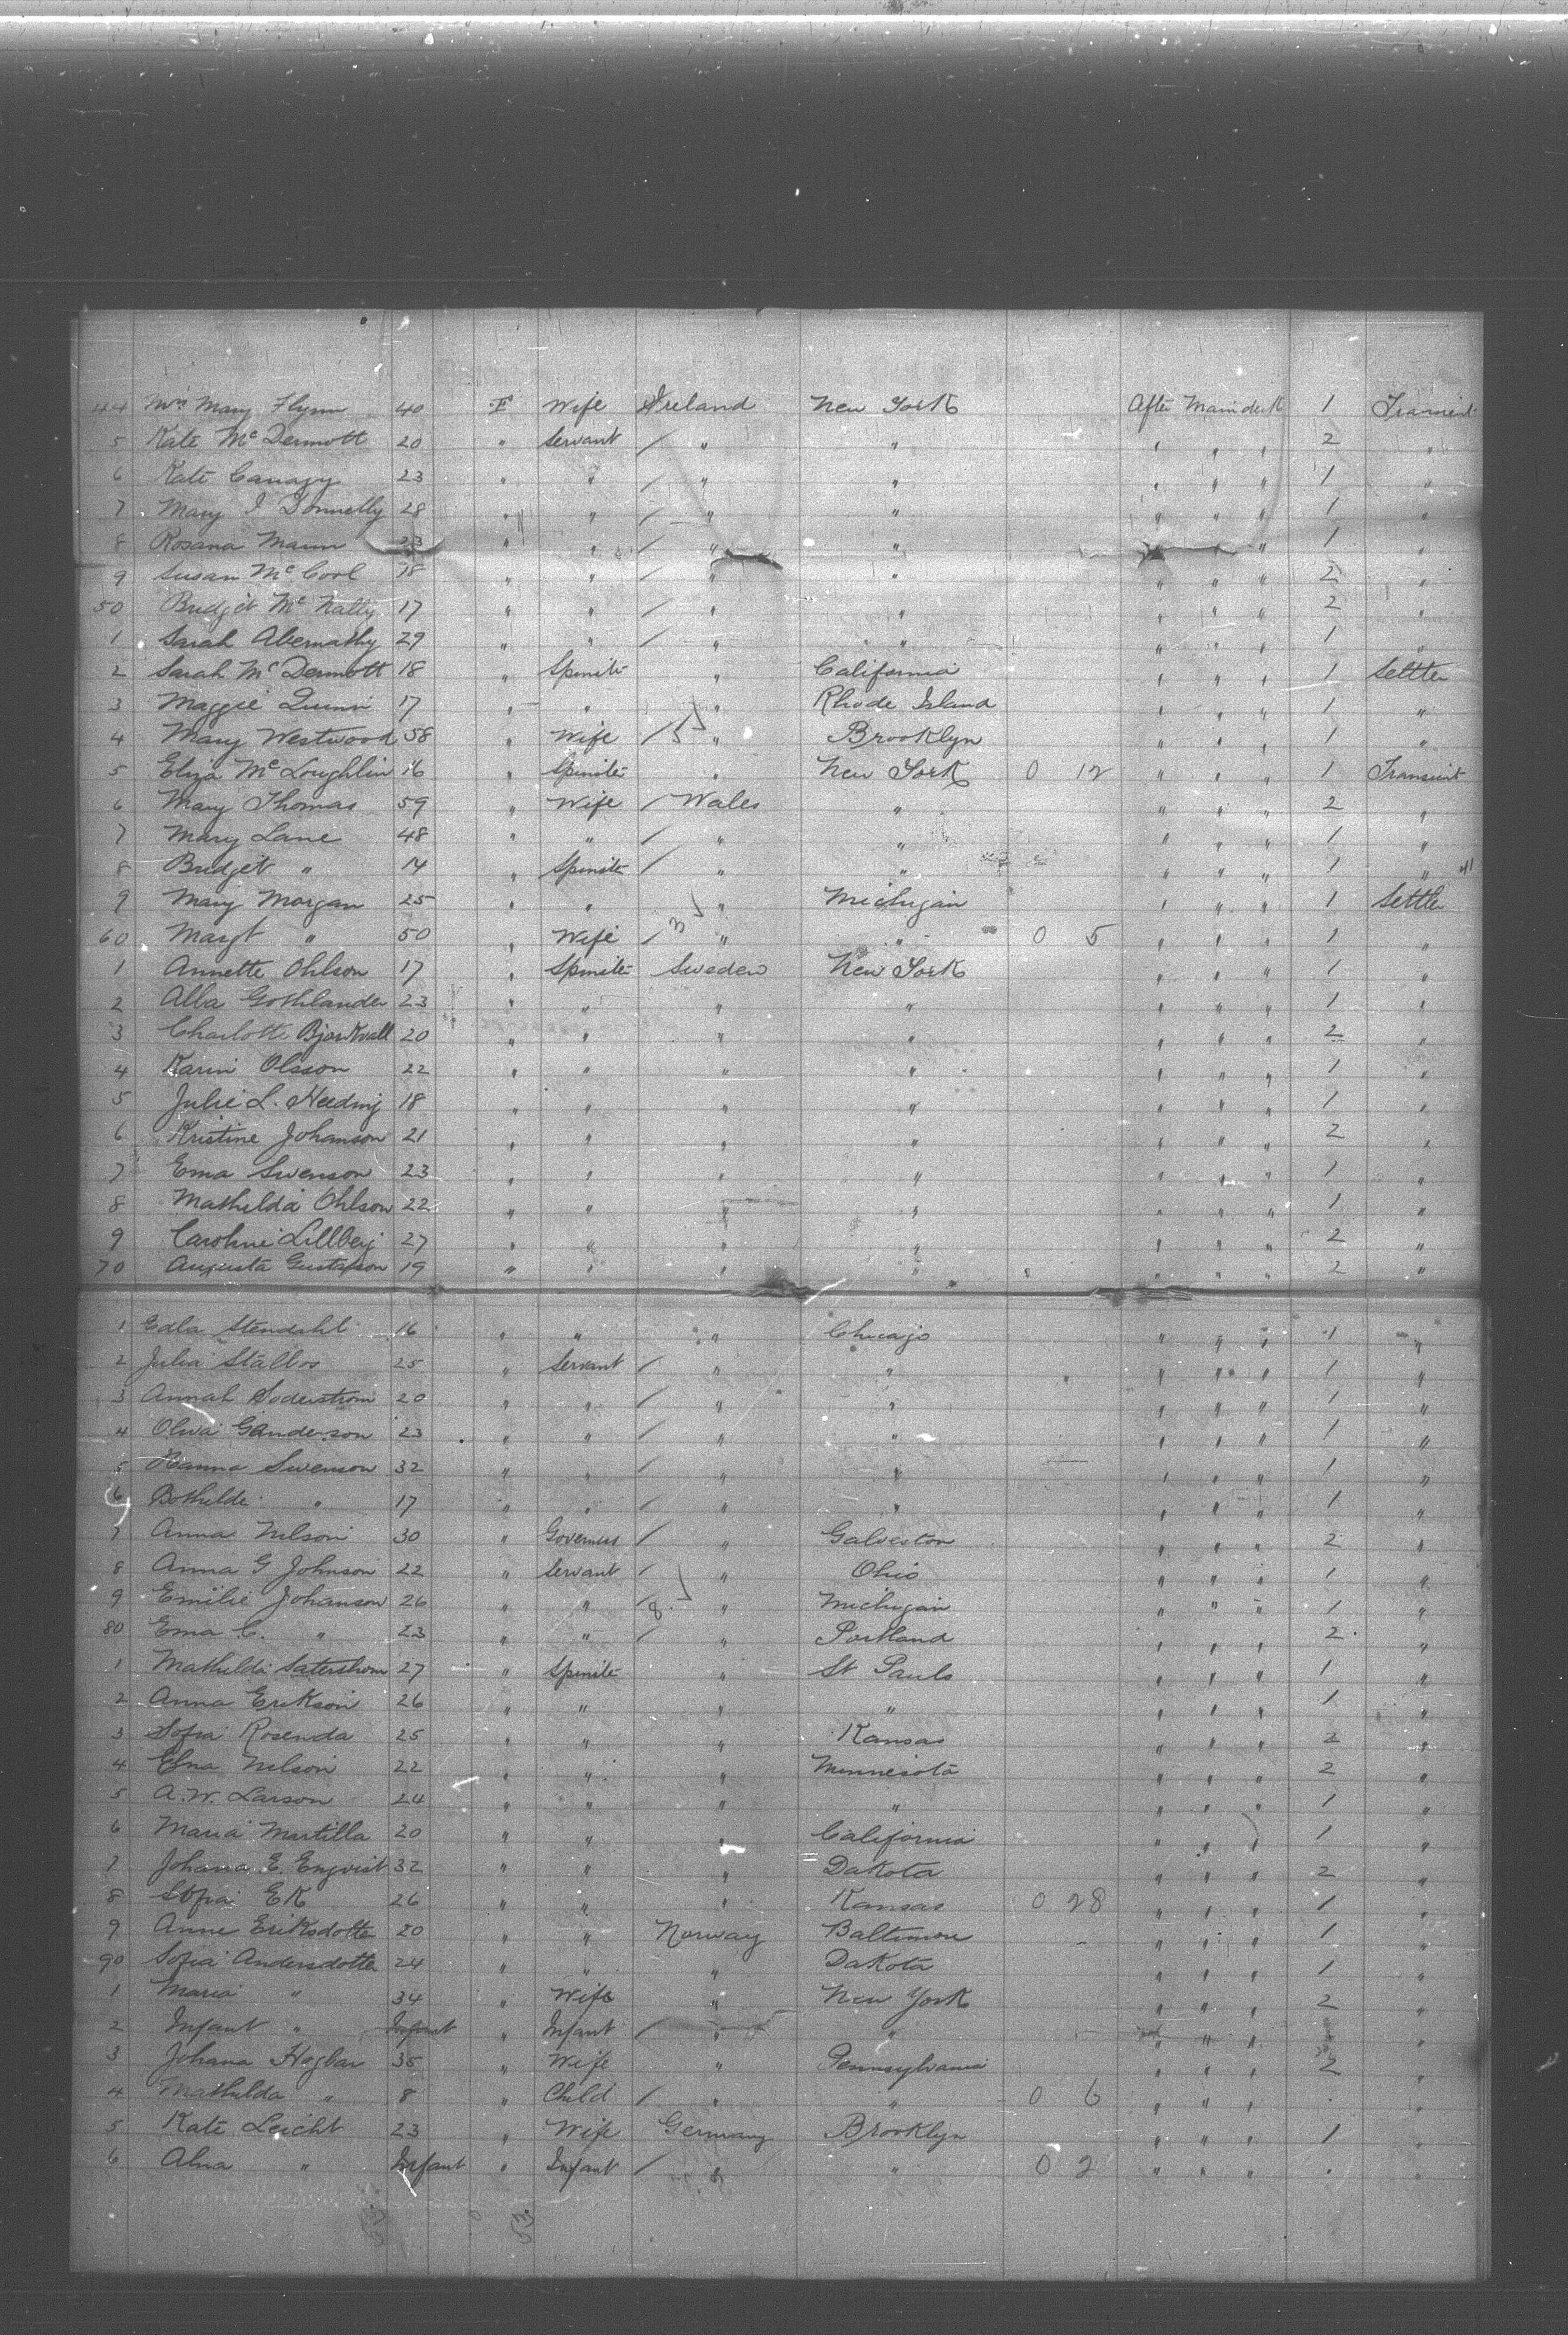 44 Mrs Mary Flynn 40 F Wife Ireland New York After Main deck 1 Transient
5 Kate McDermott 20 " Servant / " " " " " 2 "
6 Kate Canagy 23 " " / " " " " " 1 "
7 Mary I Donnelly 28 " " / " " " " " 1 "
8 Rosana Mann 23 " " / " " " " " 1 "
9 Susan McCool 18 " " / " " " " " 2 "
50 Bridget McNally 17 " " / " " " " " 2 "
1 Sarah Abernathy 29 " " / " " " " " 1 "
2 Sarah McDermott 18 " Spinstr " California " " " 1 Settler
3 Maggie Quinn 17 " " " Rhode Island " " " 1 "
4 Mary Westwood 58 " Wife / " Brooklyn " " " 1 "
5 Eliza McLoughlin 16 " Spinstr " New York 0 12 " " " 1 Transient
6 Mary Thomas 59 " Wife / Wales " " " " 2 "
7 Mary Lane 48 " " / " " " " " 1 "
8 Bridget " 14 " Spinstr / " " " " " 1 "
9 Mary Morgan 25 " " " Michigan " " " 1 Settler
60 Margt " 50 " Wife / 3 " " 0 5 " " " 1 "
1 Annette Ohlson 17 " Spinstr Sweden New York " " " 1 "
2 Alba Gothlander 23 " " " " " " " 1 "
3 Charlotte Bjorkvall 20 " " " " " " " 2 "
4 Karin Olsson 22 " " " " " " " 1 "
5 Julie L. Heeding 18 " " " " " " " 1 "
6 Kristine Johanson 21 " " " " " " " 2 "
7 Ema Swenson 23 " " " " " " " 1 "
8 Mathilda Ohlson 22 " " " " " " " 1 "
9 Caroline Lillberg 27 " " " " " " " 2 "
70 Augusta Gustafson 19 " " " " " " " 2 "
1 Edla Stendahl 16 " " " Chicago " " " 1 "
2 Julia Stålbos 25 " Servant / " " " " " 1 "
3 Annah Soderstrom 20 " " / " " " " " 1 "
4 Oliva Ganderson 23 " " / " " " " " 1 "
5 Hanna Swenson 32 " " / " " " " " 1 "
6 Bothilde " 17 " " / " " " " " 1 "
7 Anna Nilson 30 " Governess / " Galveston " " " 2 "
8 Anna G Johnson 22 " Servant / " Ohio " " " 1 "
9 Emilie Johanson 26 " " / 8 " Michigan " " " 1 "
80 Ema C. " 23 " " / " Portland " " " 2 "
1 Mathilda Saterstrom 27 " Spinstr " St Pauls " " " 1 "
2 Anna Erikson 26 " " " " " " " 1 "
3 Sofia Rosenda 25 " " " Kansas " " " 2 "
4 Elna Nilson 22 " " " Minnesota " " " 2 "
5 A.W. Larson 24 " " " " " " " 1 "
6 Maria Martilla 20 " " " California " " " 1 "
7 Johana E. Enqvist 32 " " " Dakota " " " 2 "
8 Sofia EK 26 " " " Kansas 0 28 " " " 1 "
9 Anne Eriksdotter 20 " " Norway Baltimore " " " 1 "
90 Sofia Andersdotter 24 " " " Dakota " " " 1 "
1 Maria " 34 " Wife " New York " " " 2 "
2 Infant " Infant " Infant / " " " " " "
3 Johana Hogbar 35 " Wife " Pennsylvania " " " 2 "
4 Mathilda " 8 " Child / " " 0 6 " " " "
5 Kate Leicht 23 " Wife Germany Brooklyn " " " 1 "
6 Alna " Infant " Infant / " " 0 2 " " " "